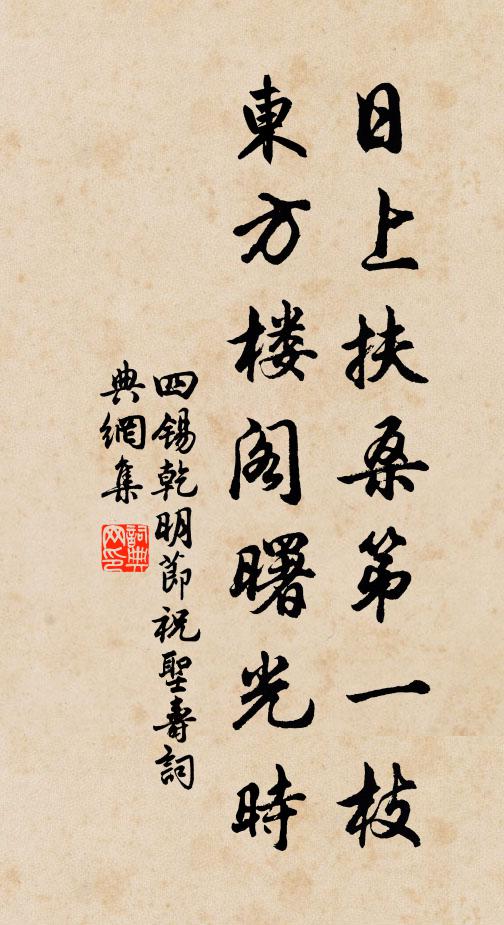 日上扶桑第一枝
東方楼阁曙光時
四錫乾明節祝聖壽詞
典網集
詞典網印